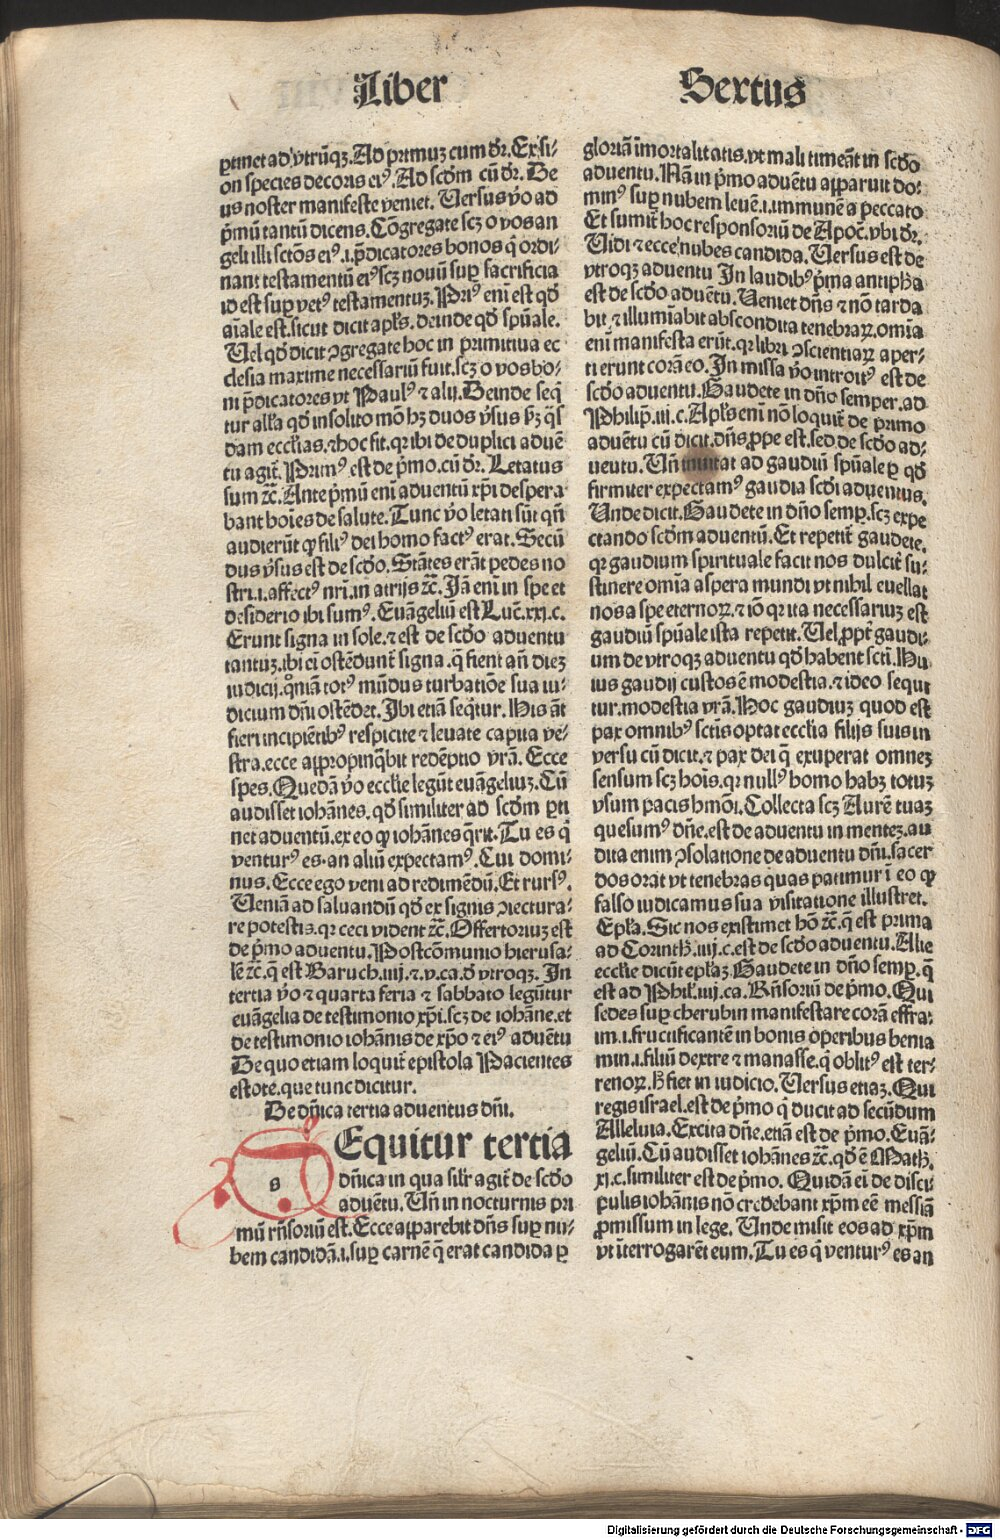 Liber Sextus
ꝑtinet ad vtrūqꝫ. Ad primuꝫ cum dr̄. Ex si⸗
on species decoris eiꝰ. Ad scḋm cū dr̄. De
us noster manifeste veniet. Uersus v̊o ad
p̄mū tantū dicens. Cōgregate scꝫ o vos an
geli illi sctōs eiꝰ .i. p̄dicatores bonos q̇ ordi⸗
nant testamentū eiꝰ scꝫ nouū suꝑ sacrificia
id est suꝑ vetꝰ testamentuꝫ. Priꝰ eni est qḋ
aīale est. sicut dicit apłs. deinde qḋ spūale.
Uel qḋ dicit ꝯgregate hoc in primitiua ec
clesia maxime necessariū fuit. scꝫ o vos bo⸗
ni p̄dicatores vt Paulꝰ ⁊ alij. Deinde seq̄
tur alła qḋ insolito mō hꝫ duos v̓sus ẜꝫ q̇s
dam ecclīas. ⁊ hoc fit. qꝛ ibi de duplici aduē
tu agit̄. Primꝰ est de p̄mo. cū dr̄. Letatus
sum ⁊c̄. Ante p̄mū eni aduentū xp̄i despera
bant hoīes de salute. Tunc v̊o letati sūt qn̄
audierūt ꝙ filiꝰ dei homo factꝰ erat. Secū
dus v̓sus est de scḋo. Stātes erāt pedes no
stri .i. affectꝰ nr̄i. in atrijs ⁊c̄. Jā eni in spe et
desiderio ibi sumꝰ. Euāgeliū est Luc̄. xxi. c.
Erunt signa in sole. ⁊ est de scḋo aduentu
tantuꝫ. ibi ei ostēdunt̄ signa. q̄ fient an̄ dieꝫ
iudicij. qm̄iā totꝰ mūdus turbatiōe sua iu⸗
dicium dn̄i ostēdet. Jbi etiā seq̄tur. His āt
fieri incipiētibꝰ respicite ⁊ leuate capita ve⸗
stra. ecce appropinq̄bit redēptio vr̄a. Ecce
spes. Quedā v̊o ecclīe legūt euāgeliuꝫ. Cū
audisset iohānes. qḋ similiter ad scḋm ꝑti
net aduentū. ex eo ꝙ iohānes q̄rit. Tu es q̇
venturꝰ es. an aliū expectamꝰ. Cui domi⸗
nus. Ecce ego veni ad redimēdū. Et rursꝰ.
Ueniā ad saluandū qḋ ex signis ꝯiectura⸗
re potestis. qꝛ ceci vident ⁊c̄. Offertoriuꝫ est
de p̄mo aduentu. Postcōmunio hierusa⸗
lē ⁊c̄. q̄ est Baruch .iiij. ⁊ .v. ca. ď vtroqꝫ. Jn
tertia v̊o ⁊ quarta feria ⁊ sabbato legūtur
euāgelia de testimonio xp̄i. scꝫ de iohāne. et
de testimonio iohānis de xp̄o ⁊ eiꝰ aduētu
De quo etiam loquit̄ epistola Pacientes
estote. que tunc dicitur.
De dn̄ica tertia aduentus dn̄i.
s Equitur tertia
dn̄ica in qua silr̄ agit̄ de scḋo
aduētu. Un̄ in nocturnis pri
mū rn̄soriū est. Ecce apparebit dn̄s suꝑ nu⸗
bem candidā .i. suꝑ carnē q̄ erat candida ꝑ
gloriā īmortalitatis. vt mali timeāt in scḋo
aduentu. Nā in p̄mo aduētu apparuit do⸗
minꝰ suꝑ nubem leuē .i. immunē a peccato
Et sumit̄ hoc responsoriū de Apoc̄. vbi dr̄.
Uidi ⁊ ecce nubes candida. Uersus est de
vtroqꝫ aduentu Jn laudibꝰ p̄ma antipħa
est de scḋo aduētu. Ueniet dn̄s ⁊ nō tarda
bit. ⁊ illumīabit abscondita tenebraꝝ. omīa
eni manifesta erūt. qꝛ libri ꝯscientiaꝝ aper⸗
ti erunt corā eo. Jn missa v̊o introitꝰ est de
scḋo aduentu. Gaudete in dn̄o semper. ad
Philip̄. iii. c. Apłs eni nō loquit̄ de primo
aduētu cū dicit. dn̄s ꝓpe est. sed de scḋo ad⸗
uentu. Un̄ inuitat ad gaudiū spūale ꝑ qḋ
firmiter expectamꝰ gaudia scḋi aduentus.
Unde dicit. Gaudete in dn̄o semꝑ. scꝫ expe
ctando scḋm aduentū. Et repetit̄ gaudete.
qꝛ gaudium spirituale facit nos dulcit̄ su⸗
stinere omīa aspera mundi vt nihil euellat
nos a spe eternoꝝ. ⁊ iō qꝛ ita necessariuꝫ est
gaudiū spūale ista repetit. Uel ꝓpt̄ gaudi⸗
um de vtroqꝫ aduentu qḋ habent scti. Hu
ius gaudij custos ē modestia. ⁊ ideo sequi
tur. modestia vr̄a. Hoc gaudiuꝫ quod est
pax omnibꝰ sctis optat ecclīa filijs suis in
versu cū dicit. ⁊ pax dei q̄ exuperat omneꝫ
sensum scꝫ hoīs. qꝛ nullꝰ homo habꝫ totuꝫ
vsum pacis hmōi. Collecta scꝫ Aurē tuaꝫ
quesumꝰ dn̄e. est de aduentu in menteꝫ. au
dita enim ꝯsolatione de aduentu dn̄i. sacer
dos orat vt tenebras quas patimur ī eo ꝙ
falso iudicamus sua visitatione illustret.
Epła. Sic nos existimet hō ⁊c̄. q̄ est prima
ad Corinth̄. iiij. c. est de scḋo aduentu. Alie
ecclīe dicūt epłaꝫ. Gaudete in dn̄o semꝑ. q̄
est ad Phil̄. iiij. ca. Rn̄soriū de p̄mo. Qui
sedes suꝑ cherubin manifestare corā effra⸗
im .i. fructificantē in bonis operibus benia
min .i. filiū dextre ⁊ manasse. q̇ oblitꝰ est ter⸗
renoꝝ. ħ fiet in iudicio. Uersus etiaꝫ. Qui
regis israel. est de p̄mo q̇ ducit ad secūdum
Alleluia. Excita dn̄e. etiā est de p̄mo. Euā⸗
geliū. Cū audisset iohānes ⁊c̄. qḋ ē Math̄.
xj. c. similiter est de p̄mo. Quidā ei de disci
pulis iohānis nō credebant xp̄m eē messiā
ꝓmissum in lege. Unde misit eos ad xp̄m
vt īterrogarēt eum. Tu es q̇ venturꝰ es an
Digitalisierung gefördert durch die Deutsche Forschungsgemeinschaft - DFG